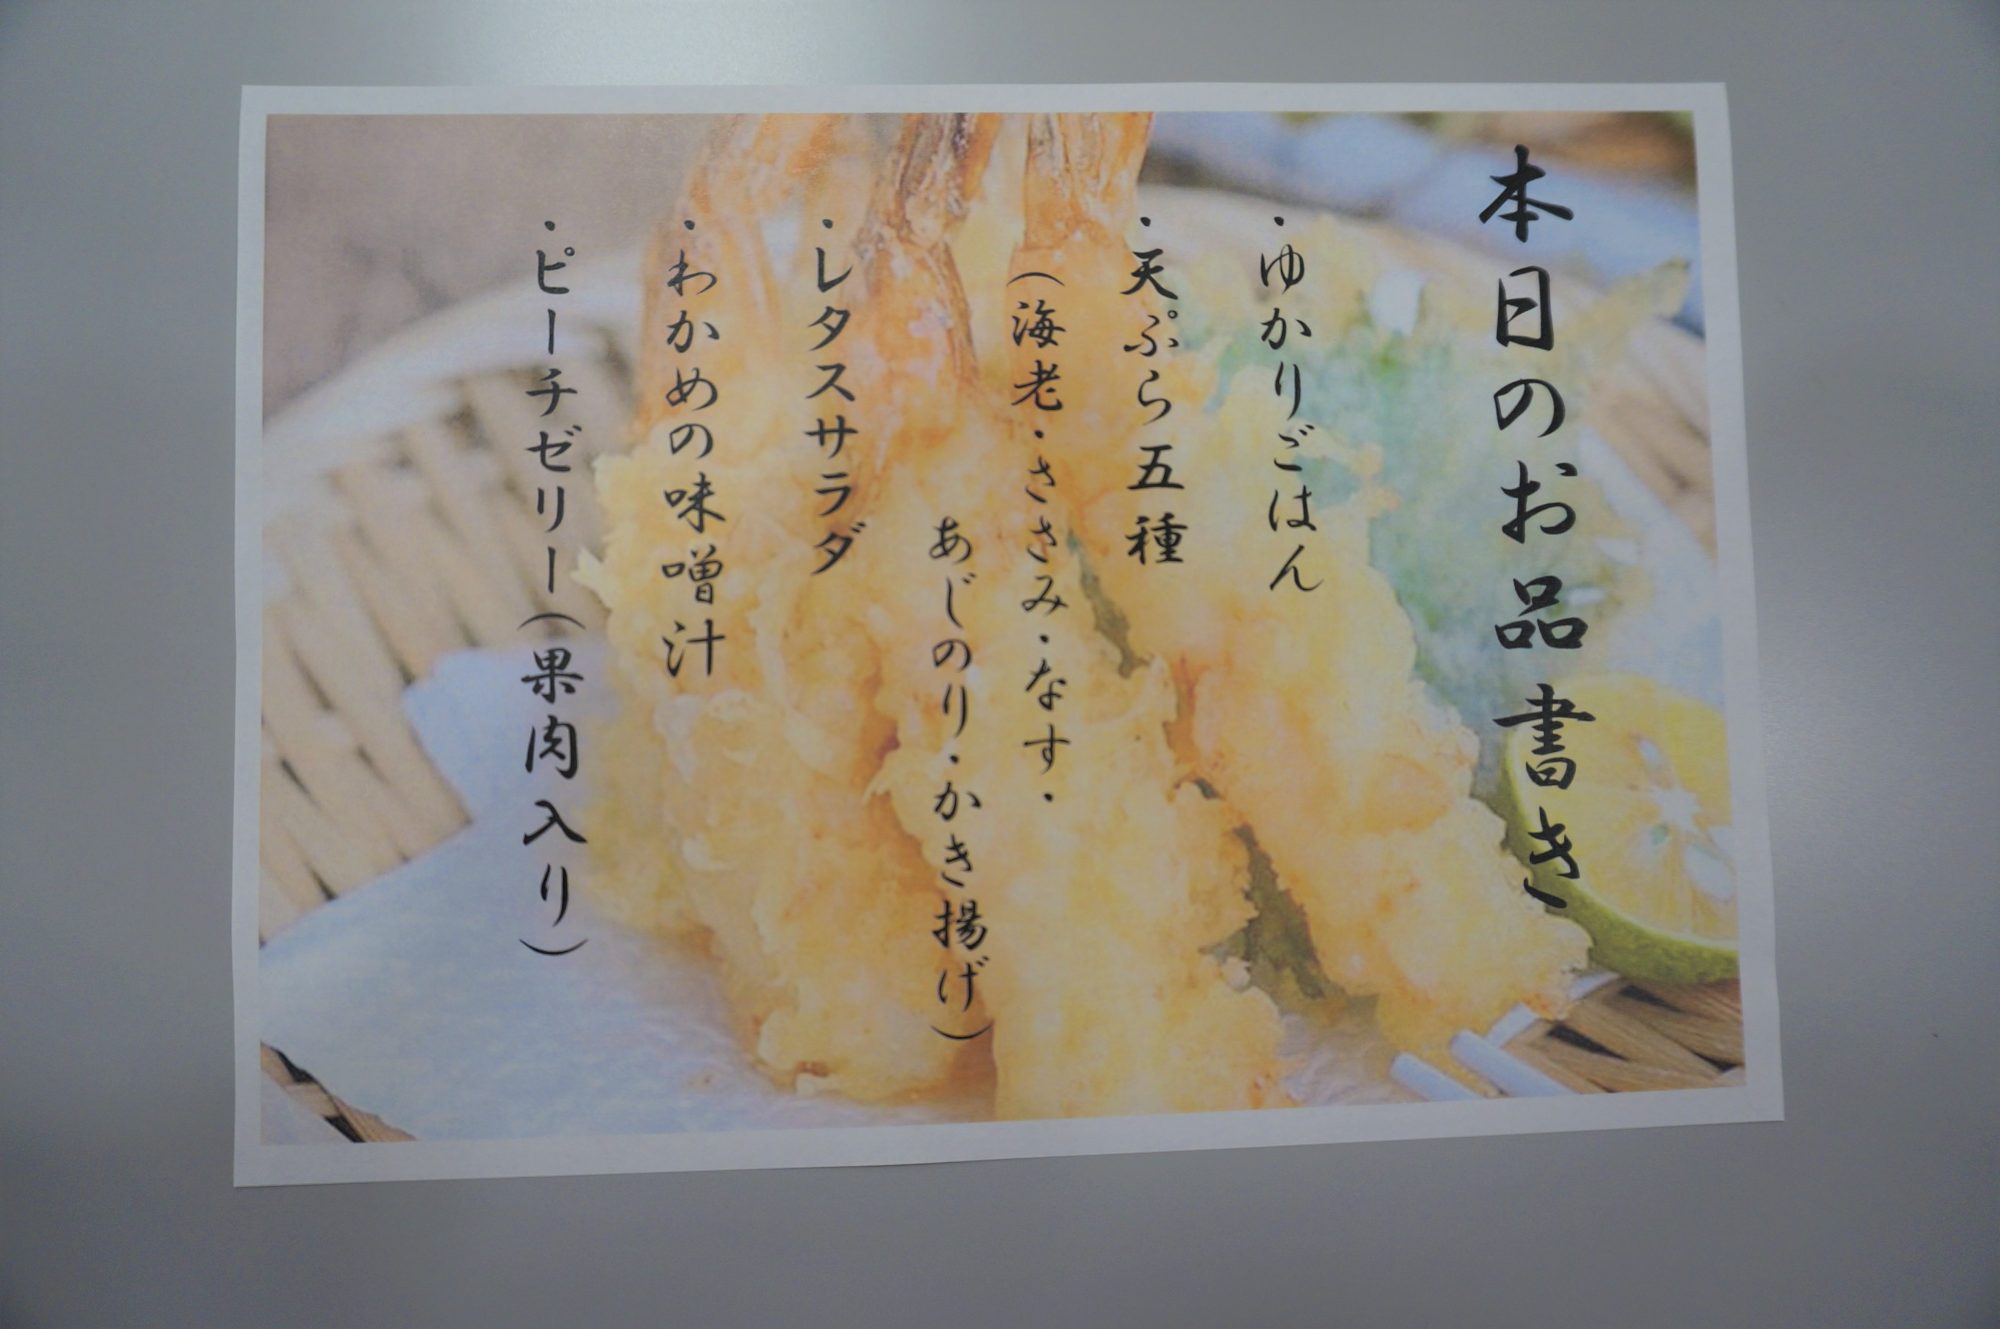 本日のお品書き
・ゆかりごはん
・天ぷら五種
(海老・ささみ・なす・
あじのり・かき揚げ)
・レタスサラダ
・わかめの味噌汁
・ピーチゼリー(果肉入り)